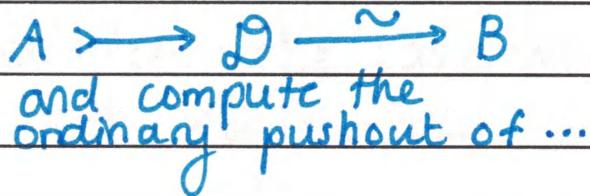 A ↣ D ⥲ B
and compute the
ordinary pushout of ...